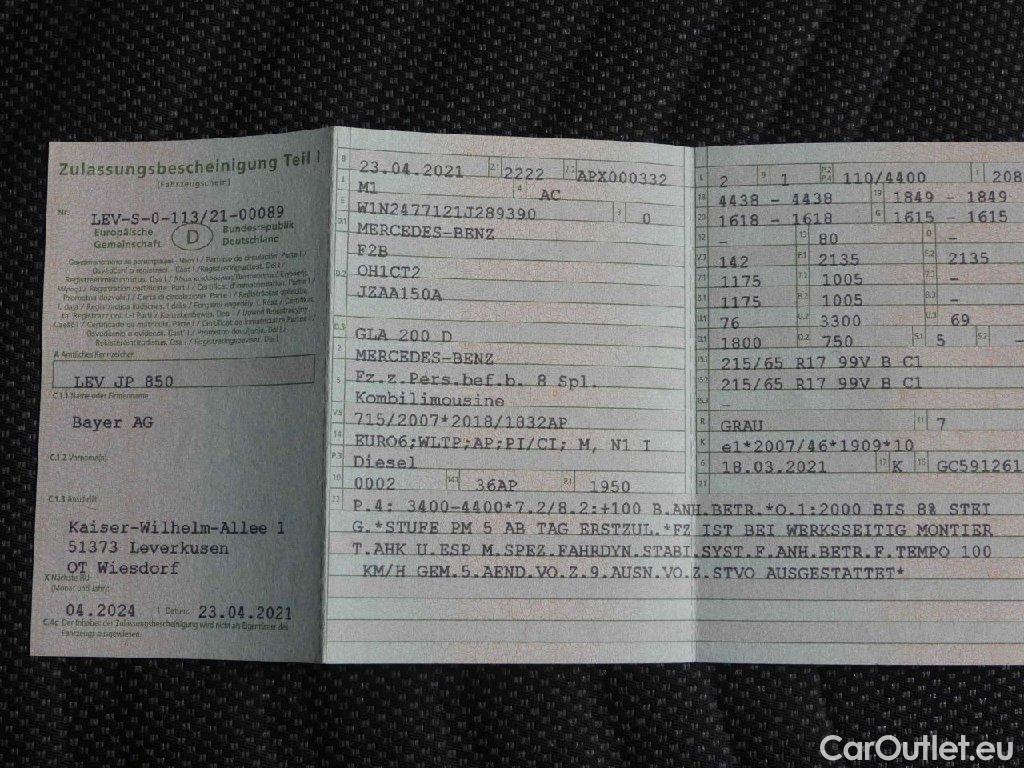 Zulassungsbescheinigung Teil I
(Fahrzeugschein)
Nr. LEV-S-0-113/21-00089
Europäische Gemeinschaft
D
Bundesrepublik Deutschland
A Amtliches Kennzeichen
LEV JP 850
C.1.1 Name oder Firmenname
Bayer AG
C.1.2 Vorname(n)
C.1.3 Anschrift
Kaiser-Wilhelm-Allee 1
51373 Leverkusen
OT Wiesdorf
X Nächste HU
(Monat und Jahr)
04.2024 I Datum: 23.04.2021
C.4c Der Inhaber der Zulassungsbescheinigung wird nicht als Eigentümer des
Fahrzeugs ausgewiesen.
B 23.04.2021 2.1 2222 2.2 APX000332
J M1 4 AC
E W1N2477121J289390 3 0
D.1 MERCEDES-BENZ
F2B
D.2 OH1CT2
JZAA150A
D.3 GLA 200 D
2 MERCEDES-BENZ
5 Fz.z.Pers.bef.b. 8 Spl.
Kombilimousine
V.9 715/2007*2018/1832AP
14 EURO6;WLTP;AP;PI/CI; M, N1 I
P.3 Diesel
10 0002 14.1 36AP P.1 1950
L 2 9 1 P.2 P.4 110/4400 T 208
18 4438 - 4438 19 1849 - 1849
20 1618 - 1618 G 1615 - 1615
12 - 13 80 Q -
V.7 142 F.1 2135 F.2 2135
7.1 1175 7.2 1005 7.3 -
8.1 1175 8.2 1005 8.3 -
U.1 76 U.2 3300 U.3 69
O.1 1800 O.2 750 S.1 5 S.2 -
15.1 215/65 R17 99V B C1
15.2 215/65 R17 99V B C1
15.3 -
R GRAU 11 7
K e1*2007/46*1909*10
6 18.03.2021 17 K 16 GC591261
21
22 P.4: 3400-4400*7.2/8.2:+100 B.ANH.BETR.*O.1:2000 BIS 8% STEI
G.*STUFE PM 5 AB TAG ERSTZUL.*FZ IST BEI WERKSSEITIG MONTIER
T.AHK U.ESP M.SPEZ.FAHRDYN.STABI.SYST.F.ANH.BETR.F.TEMPO 100
KM/H GEM.5.AEND.VO.Z.9.AUSN.VO.Z.STVO AUSGESTATTET*
CarOutlet.eu